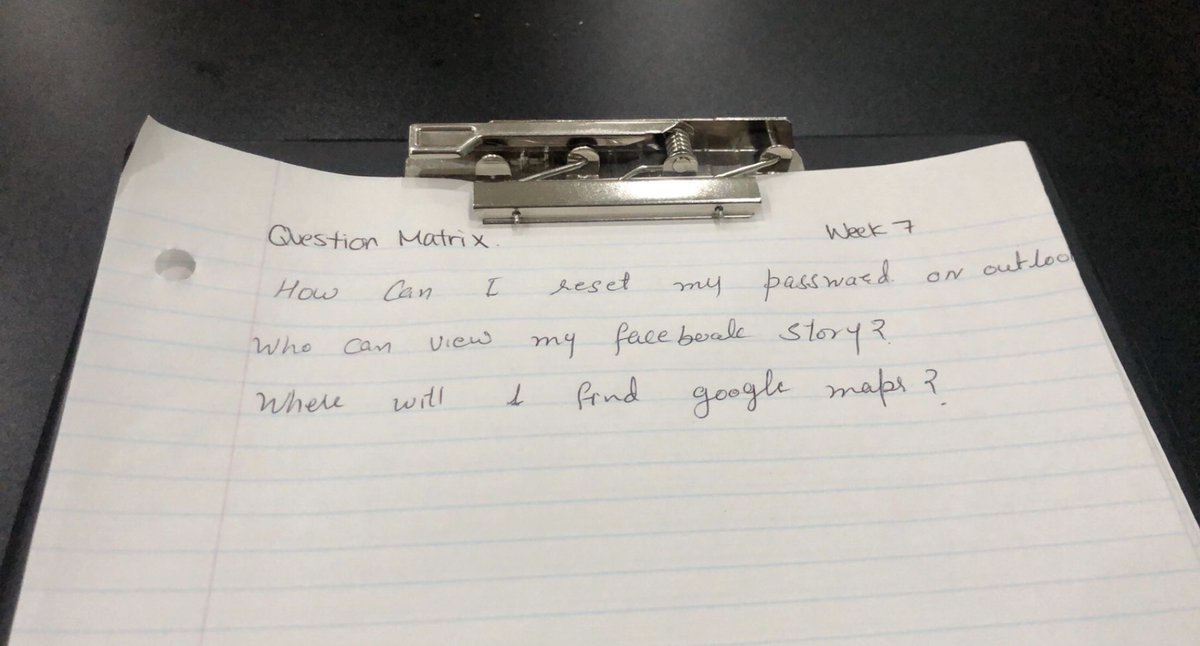 Question Matrix. Week 7
How can I reset my password on outloo
Who can view my facebook story?
Where will I find google maps?